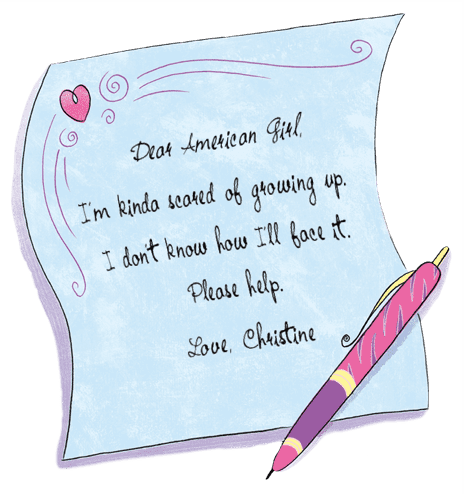 Dear American Girl,
I'm kinda scared of growing up.
I don't know how I'll face it.
Please help.
Love, Christine